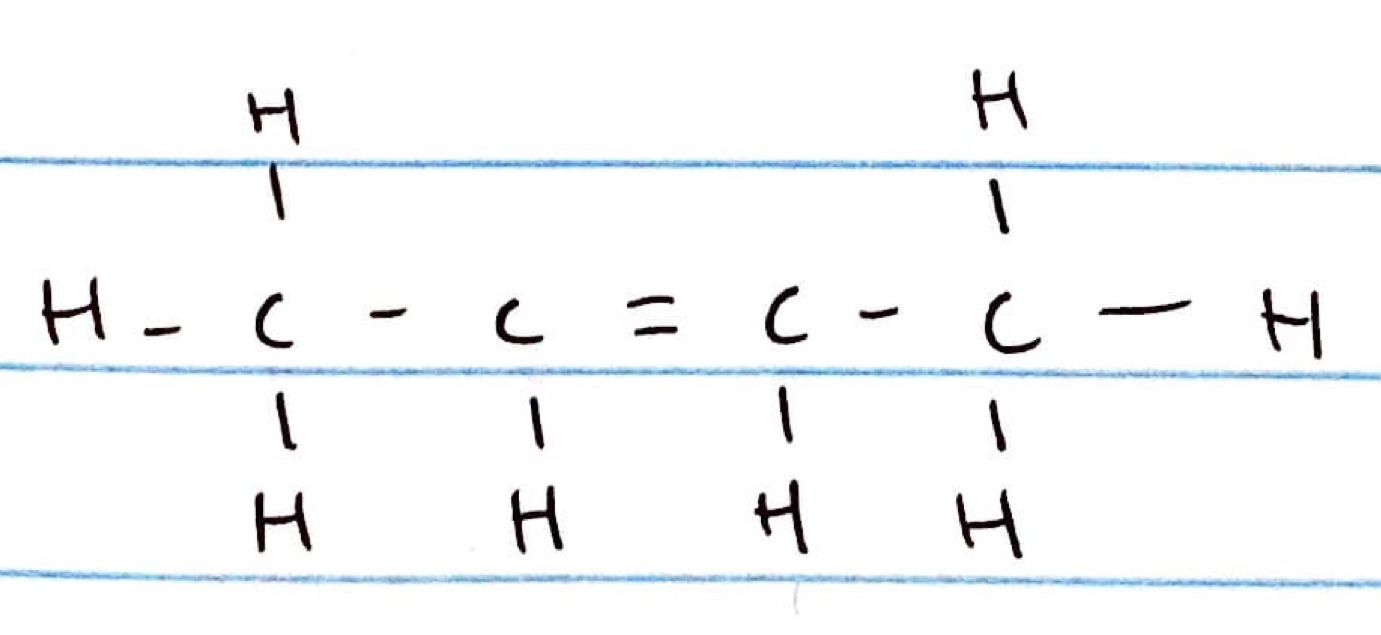 H H
| |
H - C - C = C - C — H
| | | |
H H H H